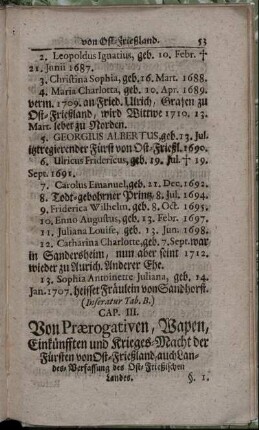 von Ost-Frießland. 53
2. Leopoldus Ignatius, geb. 10. Febr. †
21. Junii 1687.
3. Christina Sophia, geb. 16. Mart. 1688.
4. Maria Charlotta, geb. 10. Apr. 1689.
verm. 1709. an Fried. Ulrich, Grafen zu
Ost-Frießland, wird Wittwe 1710. 13.
Mart. lebet zu Norden.
5. GEORGIUS ALBERTUS, geb. 13. Jul.
itztregierender Fürst von Ost-Frießl. 1690.
6. Ulricus Fridericus, geb. 19. Jul. † 19.
Sept. 1691.
7. Carolus Emanuel, geb. 21. Dec. 1692.
8. Todt-gebohrner Printz, 8. Jul. 1694.
9. Friderica Wilhelm. geb. 8. Oct. 1695.
10. Enno Augustus, geb. 13. Febr. 1697.
11. Juliana Louise, geb. 13. Jun. 1698.
12. Catharina Charlotte, geb. 7. Sept. war
in Gandersheim, nun aber seint 1712.
wieder zu Aurich. Anderer Ehe.
13. Sophia Antoinette Juliana, geb. 14.
Jan. 1707. heisset Fräulein von Sandhorst.
(Inseratur Tab. B.)
CAP. III.
Von Prærogativen, Wapen,
Einkünfften und Krieges-Macht der
Fürsten von Ost-Frießland, auch Lan-
des-Verfassung des Ost-Frießischen
Landes. §. 1.